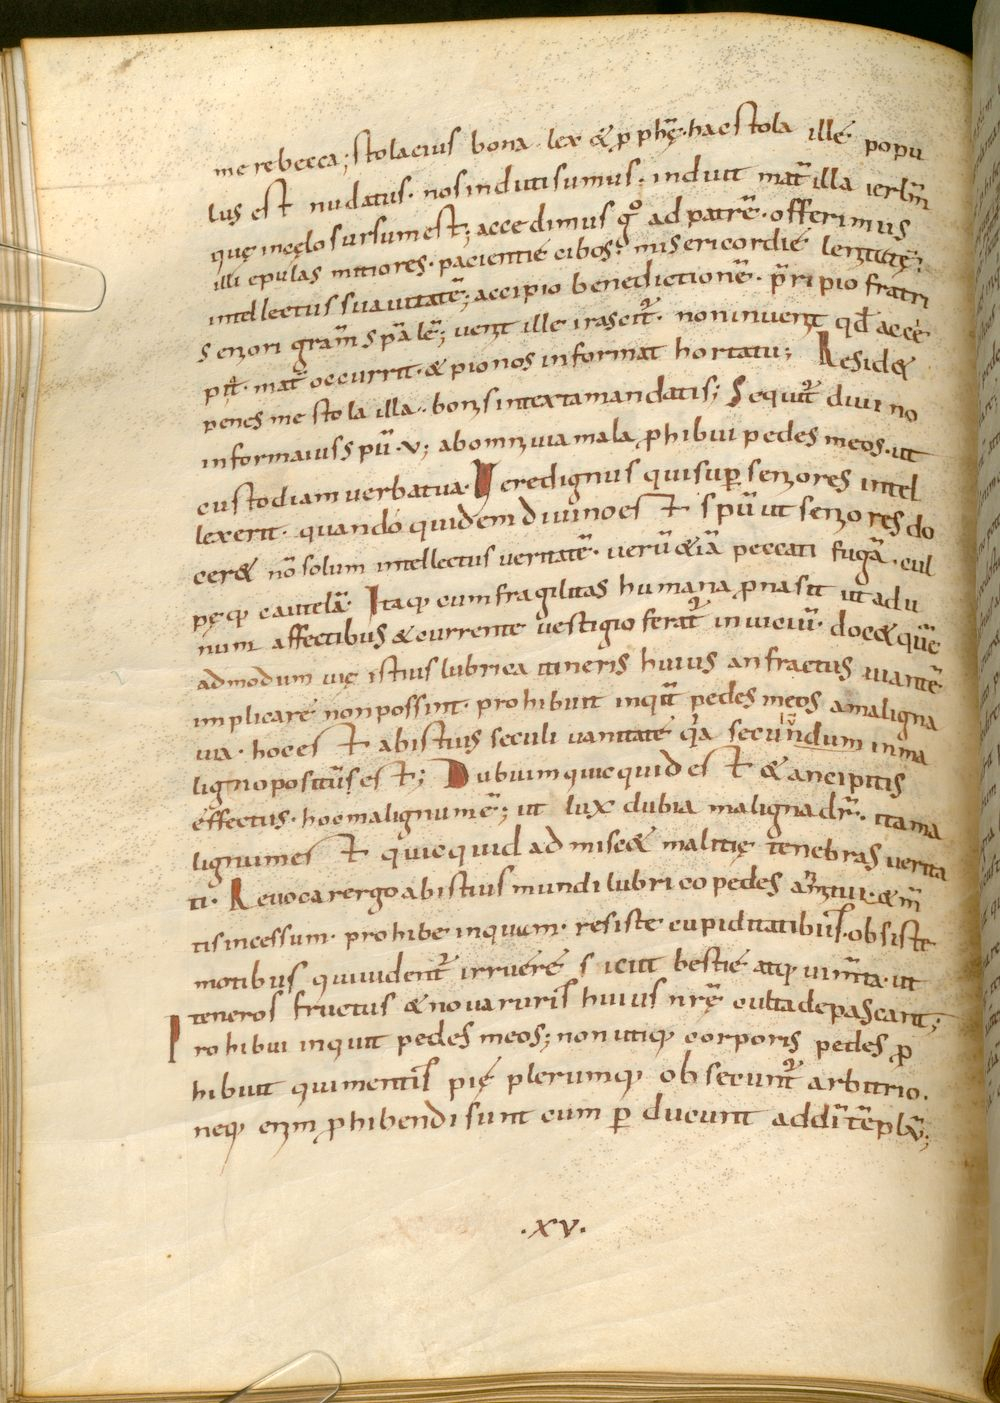 me rebecca; stola eius bona lex & ꝓphę̄. hac stola ille popu
lus est nudatus. nos induti sumus. induit mat̄ illa ierl̄m
quę in cęlo sursum est; accedimus gͦ ad patrē. offerimus
illi epulas mitiores. pacientie cibos. misericordie lenitatę̄.
intellectus suauitatē; accipio benedictionē. p̄ripio fratri
seniori gr̄am sp̄alē; venit ille irascit᷑. non inuenit qđ acce
pit̄. mat̄ occurrit. & pio nos informat hortatu; Resid&
penes me stola illa. bonis intexta mandatis; Sequit᷑ diuino
informatus sp̄u .v; ab omni uia mala ꝓhibui pedes meos. ut
custodiam verba tua. Vere dignus qui sup̱ seniores intel
lexerit. quando quidem diuino est sp̄u ut seniores do
cer& nō solum intellectus veritatē. verū &iā peccati fugā. cul
pęq; cautelā Itaq; cum fragilitas humana ꝓna sit ut ad u
num affectibus & currente vestigio ferat᷑ in uiciū. doc& quē
admodum uię istius lubrica itineris huius anfractus uiantē
implicare non possint. prohibuit inqī pedes meos a maligna
uia. hoc est ab istius seculi vanitate q̄a secundum in ma
ligno positū est; Dubium quicquid est & ancipitis
effectus. hoc malignum ē; ut lux dubia maligna dr̄. ita ma
lignum est quicquid admisc& malitię tenebras verita
ti. Reuocar ergo ab istius mundi lubrico pedes animi tui. & m̄
tis incessum. prohibe inquam. resiste cupiditatibus. obsiste
motibus qui uident᷑ irruere sicut bestie atq; uim̄ta. ut
teneros fructus & noua ruris huius nr̄ę culta depascant;
Prohibui inquit pedes meos; non utiq; corporis pedes ꝓ
hibuit qui mentis pię plerumq; obsecunt᷑ arbitrio.
neq; enim ꝓhibendi sunt cum ꝑducunt ad dī tēplū;
.xv.